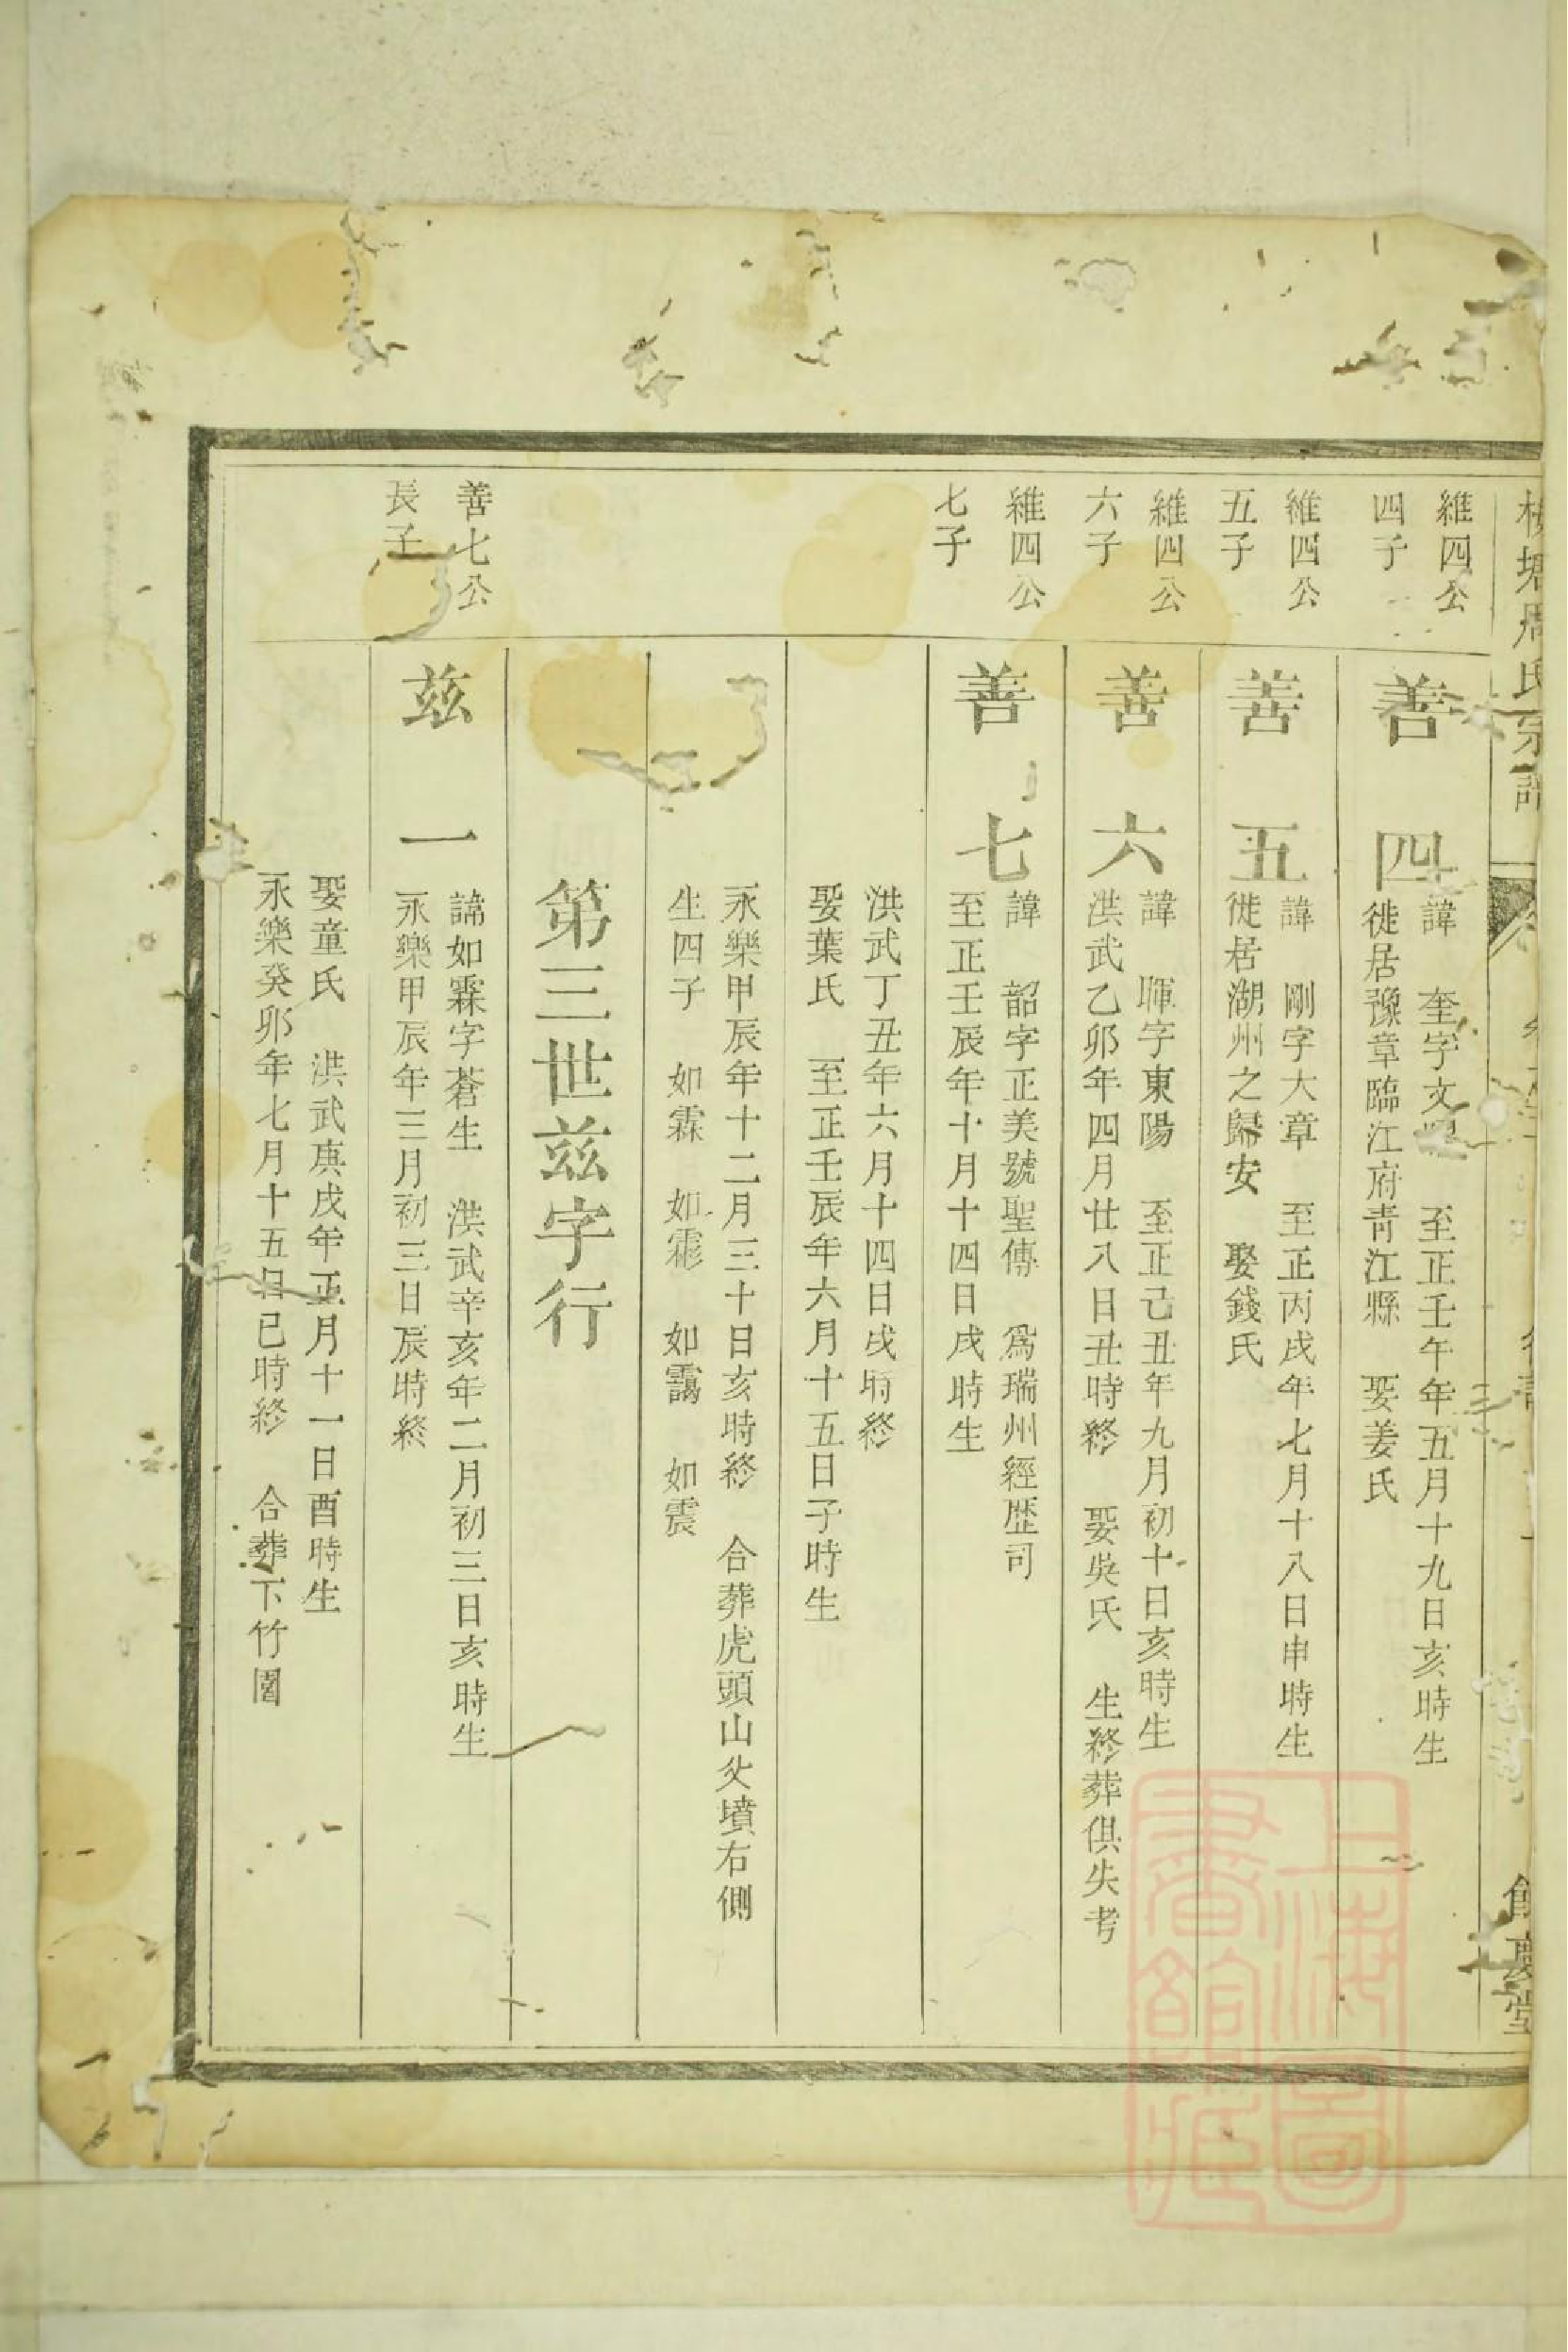 塘周氏宗譜
維四公
四子
善四
諱　奎字文　至正壬午年五月十九日亥時生
徙居豫章臨江府青江縣　娶姜氏
維四公
五子
善五
諱　剛字大章　至正丙戌年七月十八日申時生
徙居湖州之歸安　娶錢氏
維四公
六子
善六
諱　暉字東陽　至正己丑年九月初十日亥時生
洪武乙卯年四月廿八日丑時終　娶吳氏　生終葬俱失考
維四公
七子
善七
諱　韶字正美號聖傳　為瑞州經歷司
至正壬辰年十月十四日戌時生
洪武丁丑年六月十四日戌時終
娶葉氏　至正壬辰年六月十五日子時生
永樂甲辰年十二月三十日亥時終　合葬虎頭山父墳右側
生四子　如霖　如霧　如靄　如震
第三世茲字行
善七公
長子
茲一
諱如霖字蒼生　洪武辛亥年二月初三日亥時生
永樂甲辰年三月初三日辰時終
娶童氏　洪武庚戌年正月十一日酉時生
永樂癸卯年七月十五日巳時終　合葬下竹園
餘慶堂
上海圖書館藏